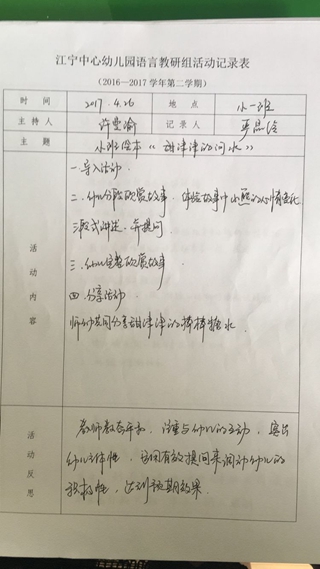 江宁中心幼儿园语言教研组活动记录表
(2016—2017学年第二学期)
时 间 2017.4.26 地 点 小一班
主 持 人 许 记 录 人
主 题 小班绘本《甜津津的河水》
活动内容
一.导入活动.
二.幼儿分段欣赏故事.体验故事中小熊的心情变化
三.幼儿完整欣赏故事.
四.分享活动
师幼共同分享甜津津的棒棒糖水.
活动反思
教师教态亲和.注重与幼儿的互动,突出
幼儿主体性.运用有效提问来调动幼儿的
积极性,达到预期效果.